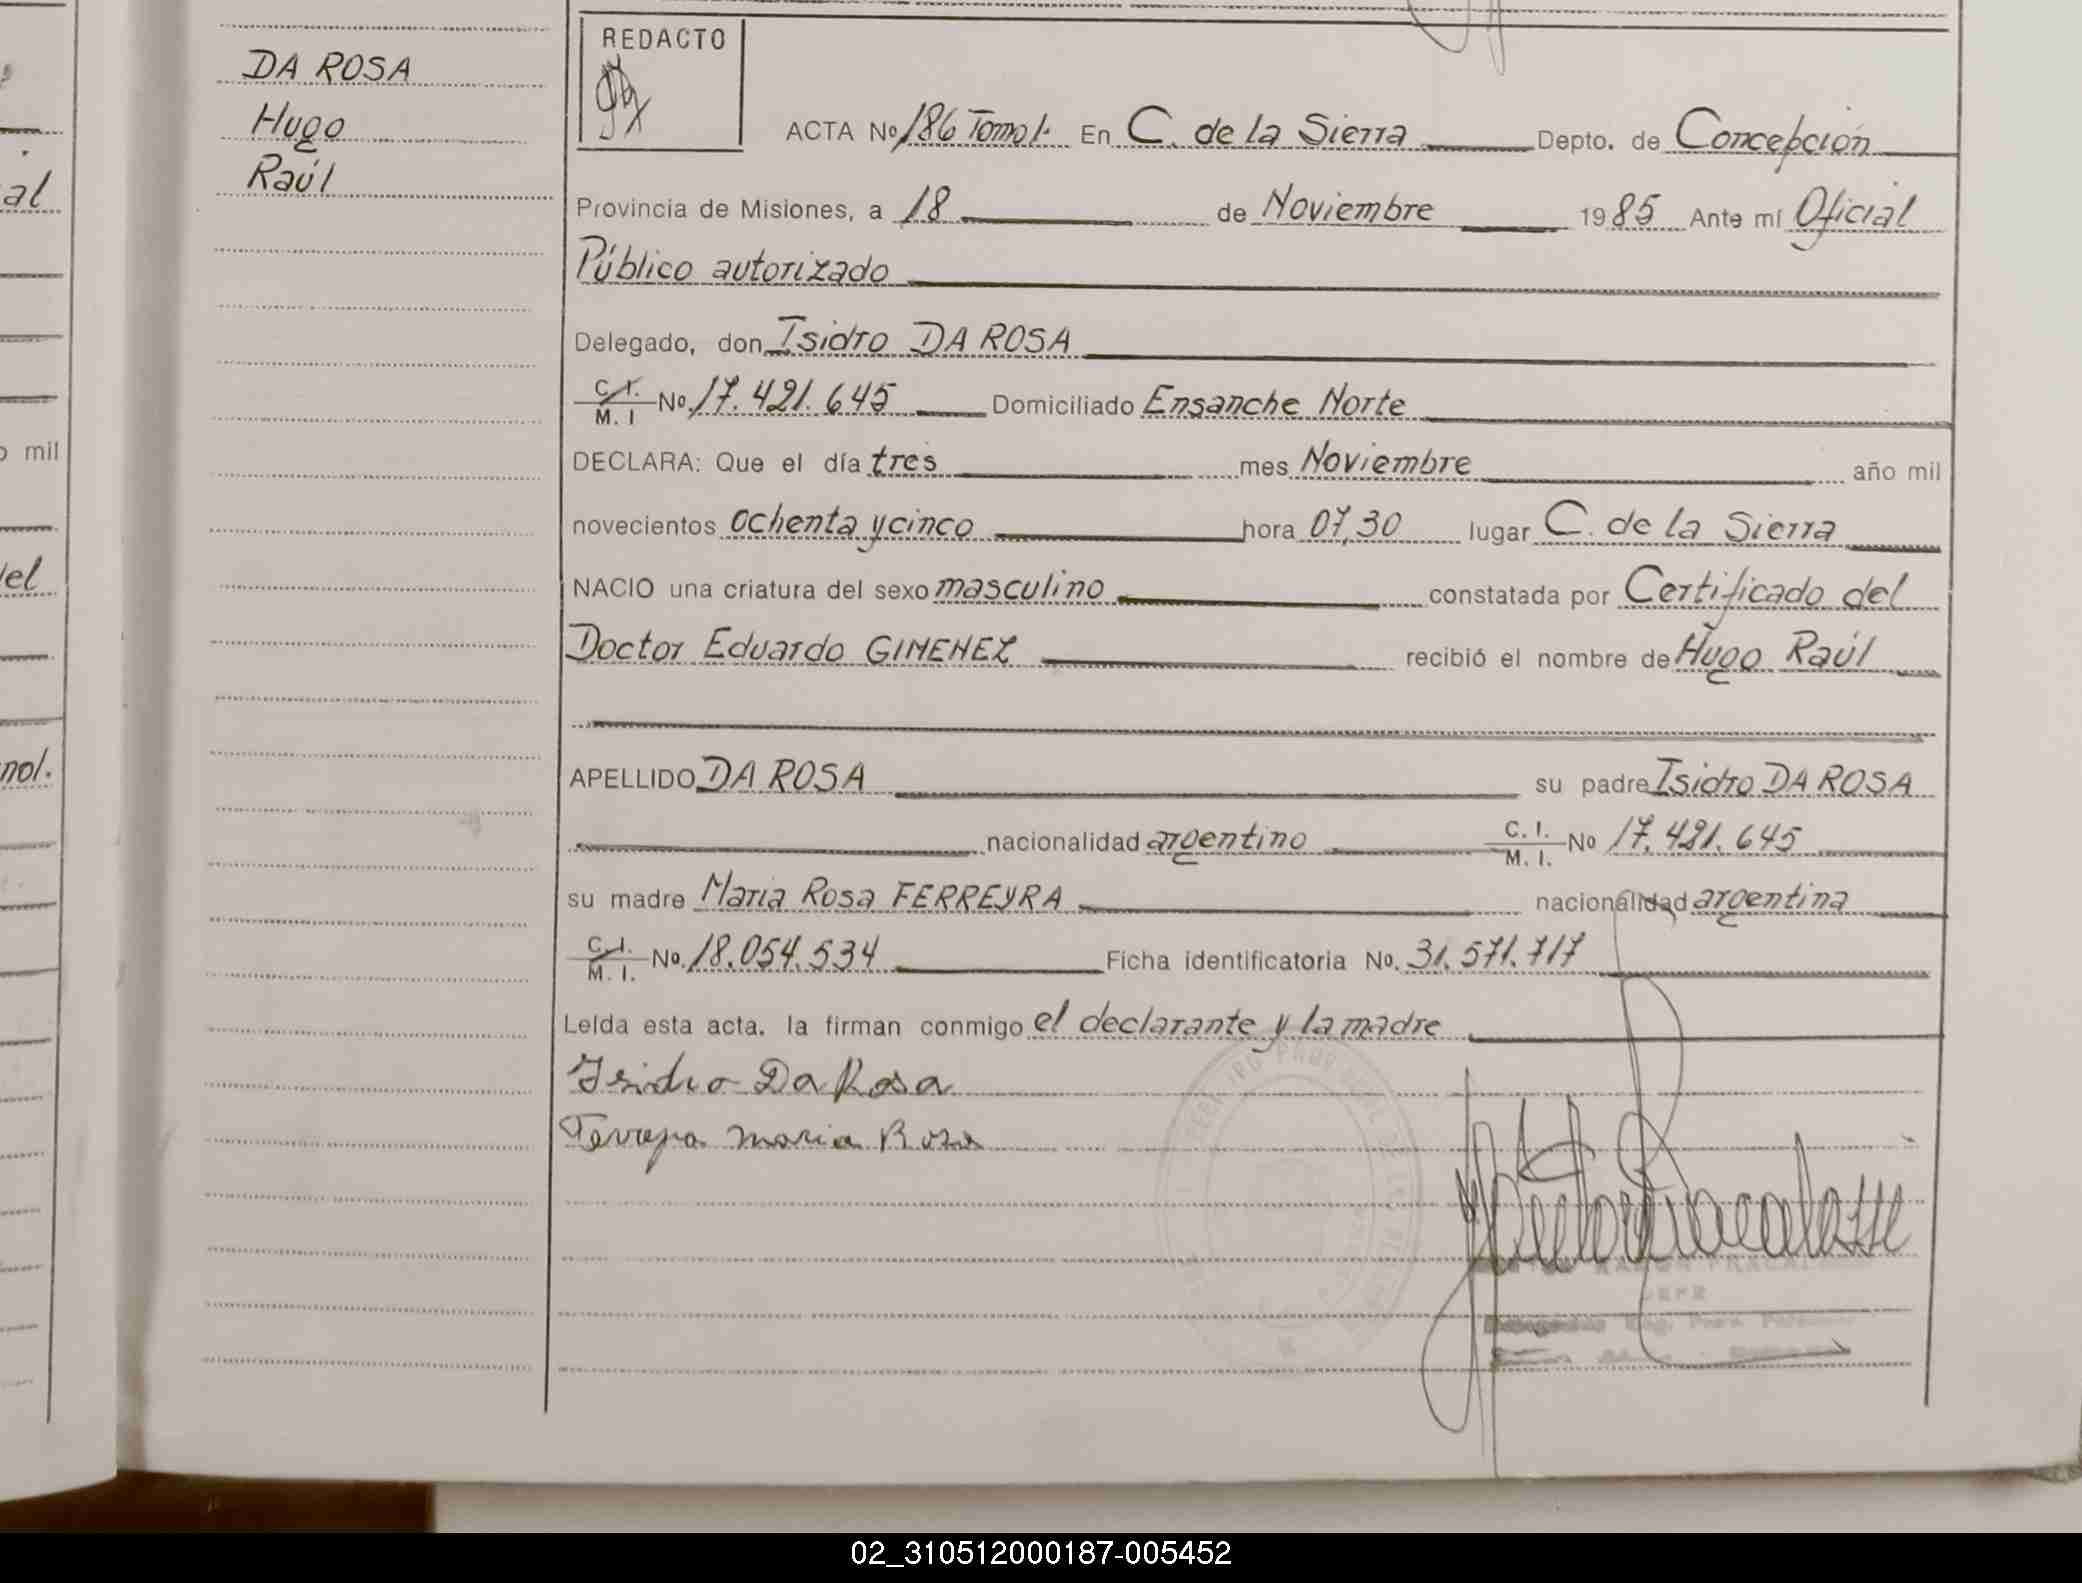 DA ROSA
Hugo
Raúl
al
o mil
del
nol.
REDACTO
ACTA No 186 Tomo 1. En C. de la Sierra Depto. de Concepción
Provincia de Misiones, a 18 de Noviembre 1985 Ante mí Oficial
Público autorizado
Delegado, don Isidro DA ROSA
C. I. M. I No. 17.421.645 Domiciliado Ensanche Norte
DECLARA: Que el día tres mes Noviembre año mil
novecientos ochenta y cinco hora 07,30 lugar C. de la Sierra
NACIO una criatura del sexo masculino constatada por Certificado del
Doctor Eduardo GIMENEZ recibió el nombre de Hugo Raúl
APELLIDO DA ROSA su padre Isidro DA ROSA
nacionalidad argentino C. I. M. I. No 17.421.645
su madre Maria Rosa FERREYRA nacionalidad argentina
C. I. M. I. No. 18.054.534 Ficha identificatoria No. 31.571.717
Leída esta acta. la firman conmigo el declarante y la madre
Isidro Da Rosa
maria Rosa
JEFE
02_310512000187-005452